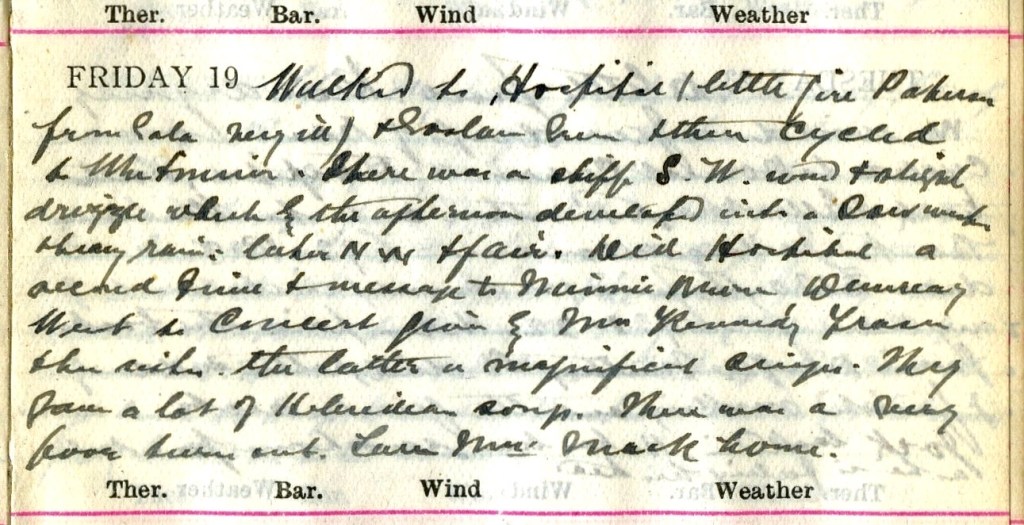 Ther. Bar. Wind Weather
FRIDAY 19 Walked to Hospital (little Paterson
from very ill) & then cycled
to . There was a stiff S.W. wind & slight
drizzle which by the afternoon developed into a
heavy rain: later N W & fair. Did Hospital a
second time & message to Minnie
Went to Concert given by Mrs Kennedy Fraser
& her sister. The latter a magnificent singer. They
gave a lot of Hebridean songs. There was a very
poor turn out. Saw Mrs Mack home.
Ther. Bar. Wind Weather